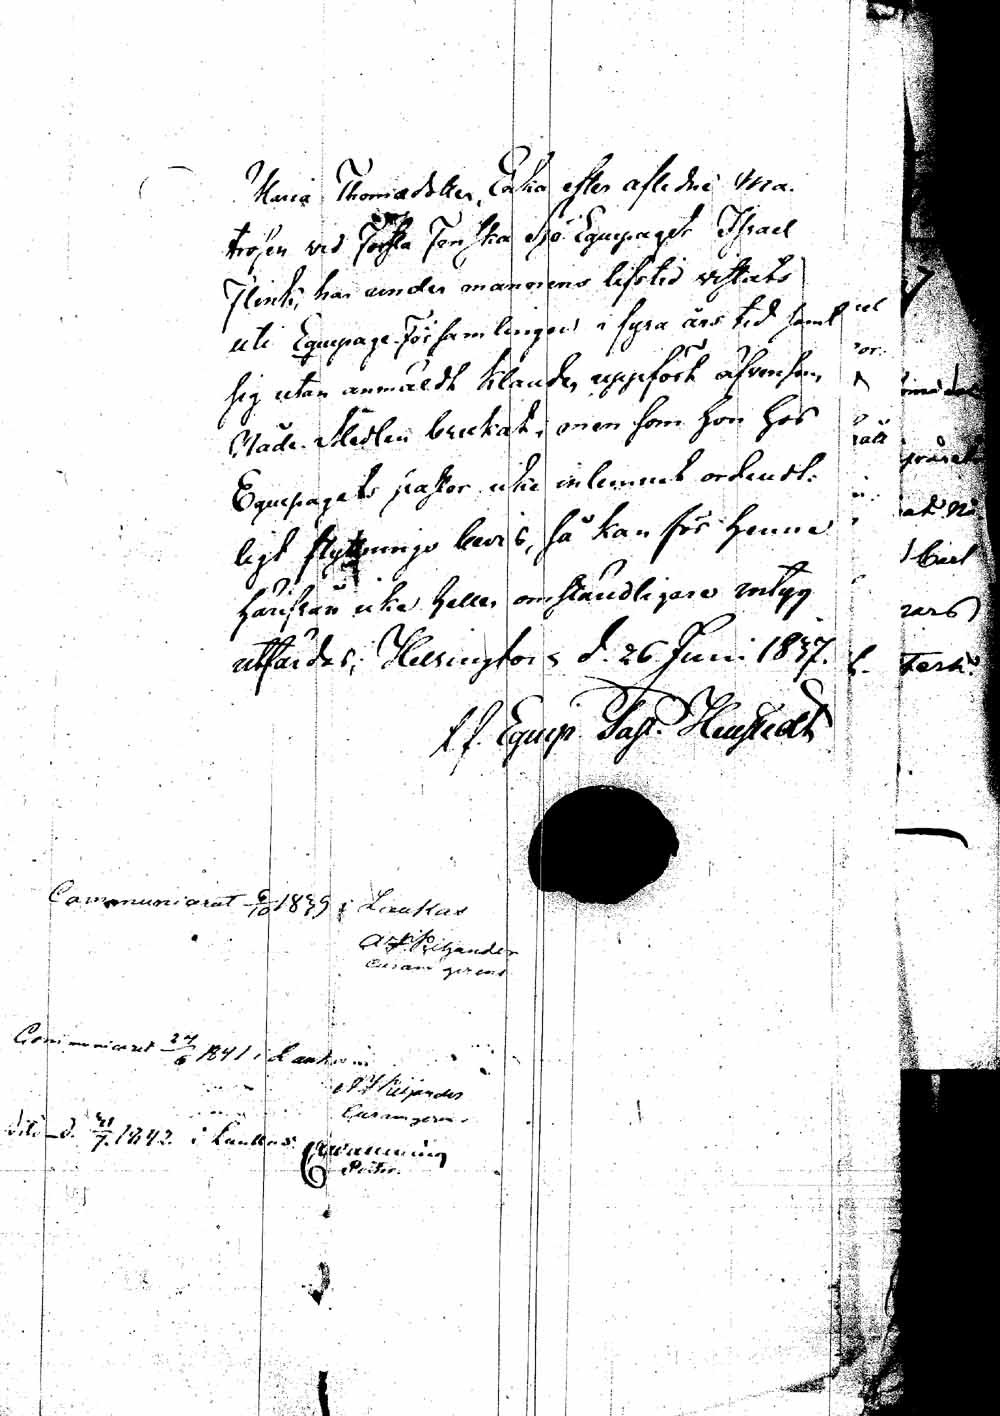 Maria Thomædotter, Enka efter aflidne Ma-
trosen vid Första Finska Sjö Equipaget Israel
Flink, har under mannens lifstid vistats
uti Equipage-Församlingen i fyra års tid samt
sig utan anmäldt klander uppfört äfvensom
Nåde-Medlen brukat, men som hon hos
Equipagets pastor icke inlemnat ordent-
ligt flyttnings bevis, så kan för henne
härifrån icke heller omständligare intyg
utfärdas; Helsingfors d. 26 Juni 1837.
Equip. Past.
Communicerat 6/10 1839 i Laukas
curam gerens
Communicerat 27/6 1841 i Laukas
Curam gerens
dito d. /7. 1842. i Laukas